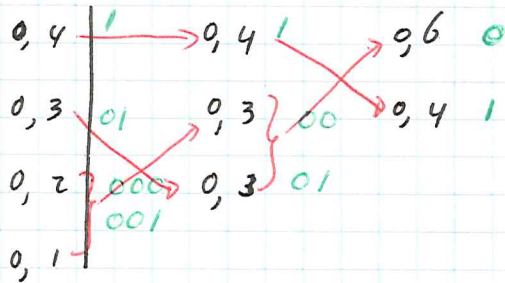 0,4 1 0,4 1 0,6 0
0,3 01 0,3 00 0,4 1
0,2 000 0,3 01
001
0,1